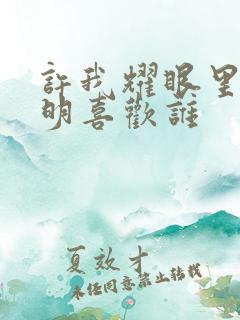 許我耀眼里
明喜歡誰
夏效才
未经同意禁止转载